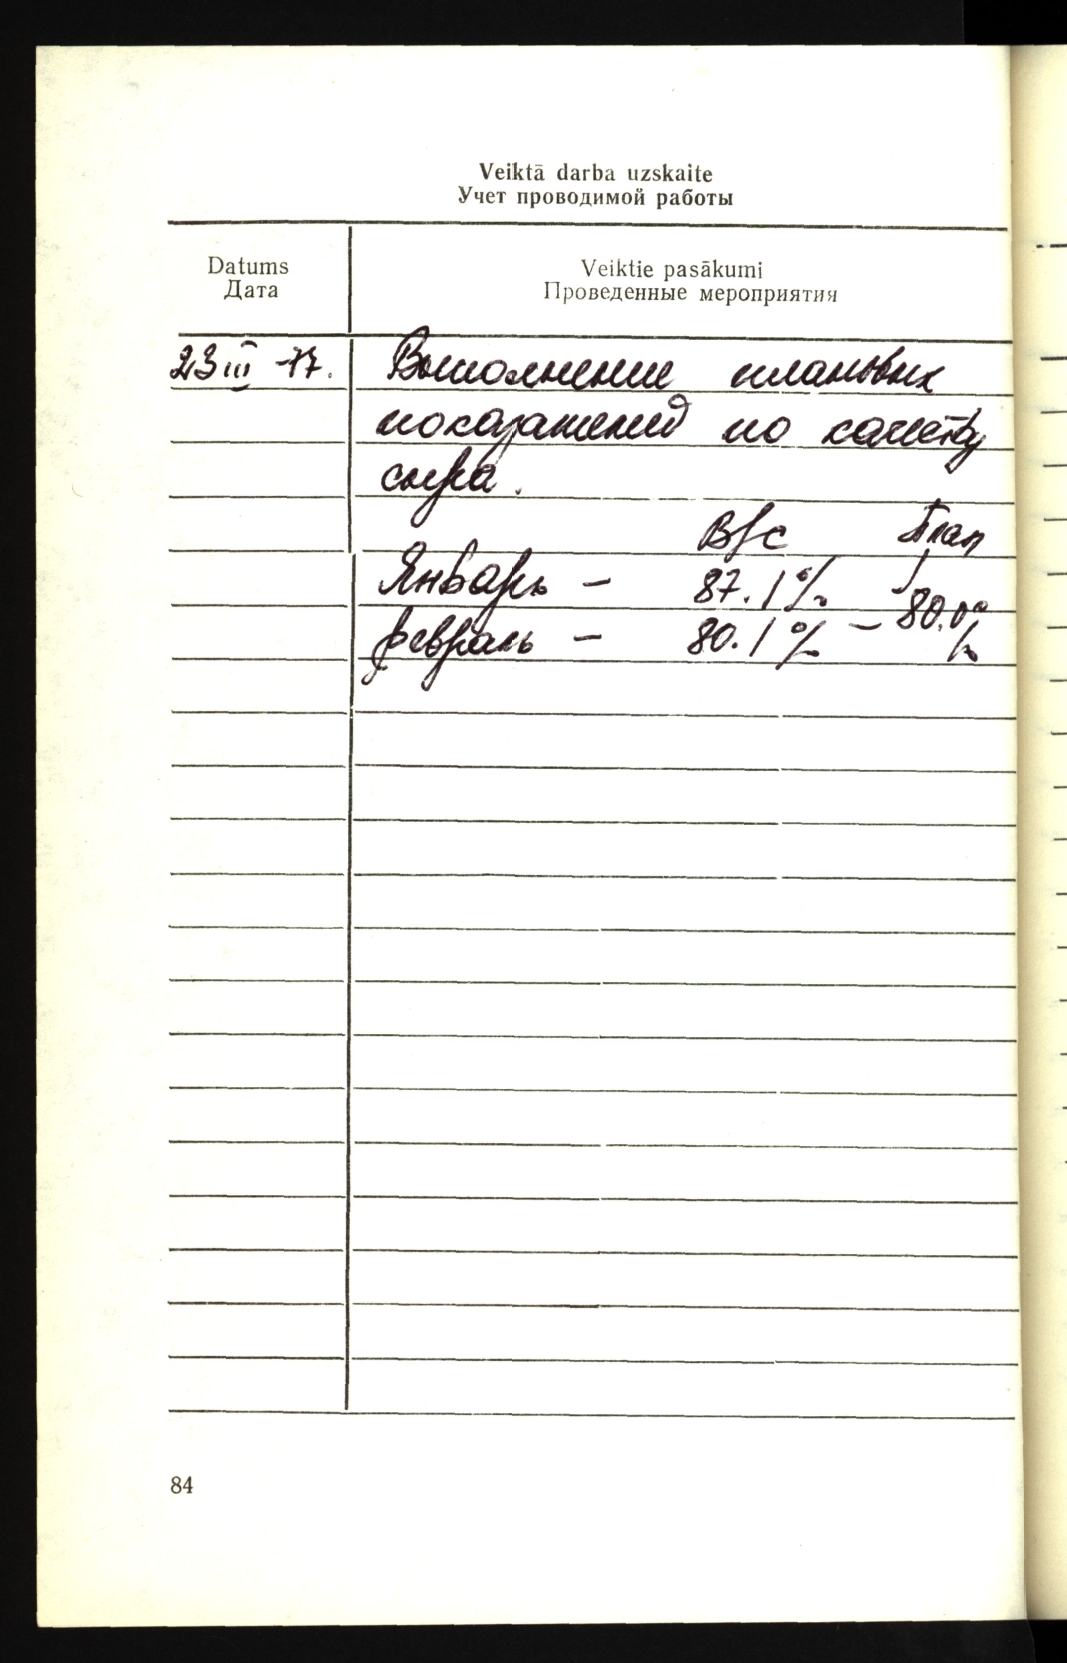 Veiktā darba uzskaite
Учет проводимой работы
Datums
Дата
Veiktie pasākumi
Проведенные мероприятия
23 III -77. Выполнение плановых
показателей по качеству
сыра.
В/с План
Январь – 87.1%
февраль – 80.1% – 80.0%
84